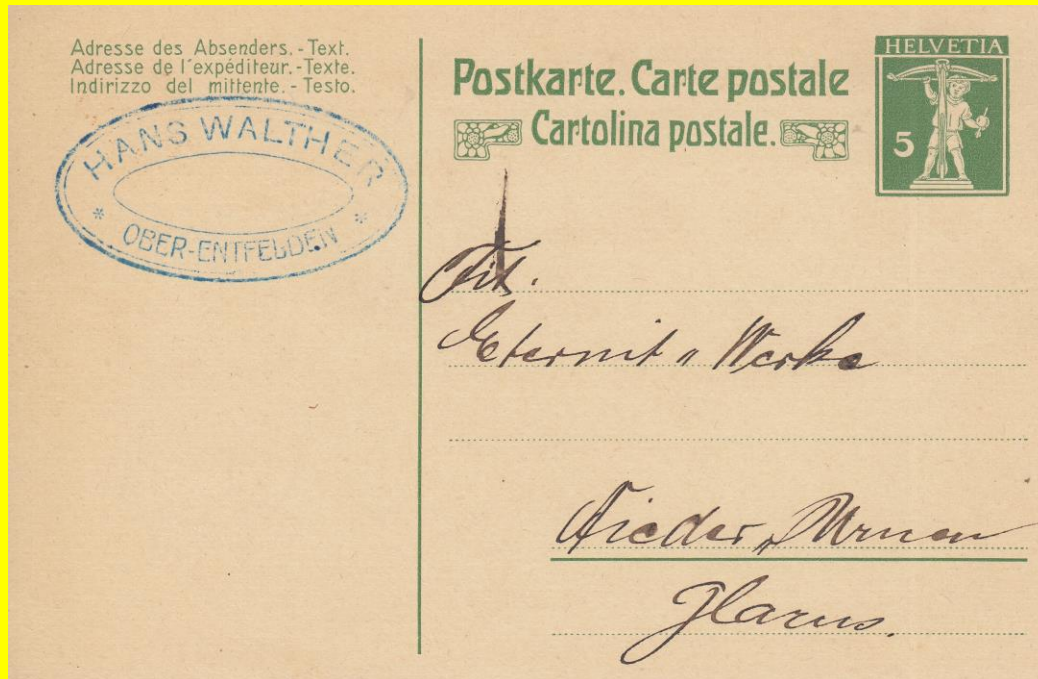 Adresse des Absenders.-Text.
Adresse de l'expéditeur.-Texte.
Indirizzo del mittente.-Testo.
HANS WALTHER
* OBER-ENTFELDEN *
Postkarte. Carte postale
Cartolina postale.
HELVETIA
5
Eternit " Werke
Nieder " Urnen
Glarus.